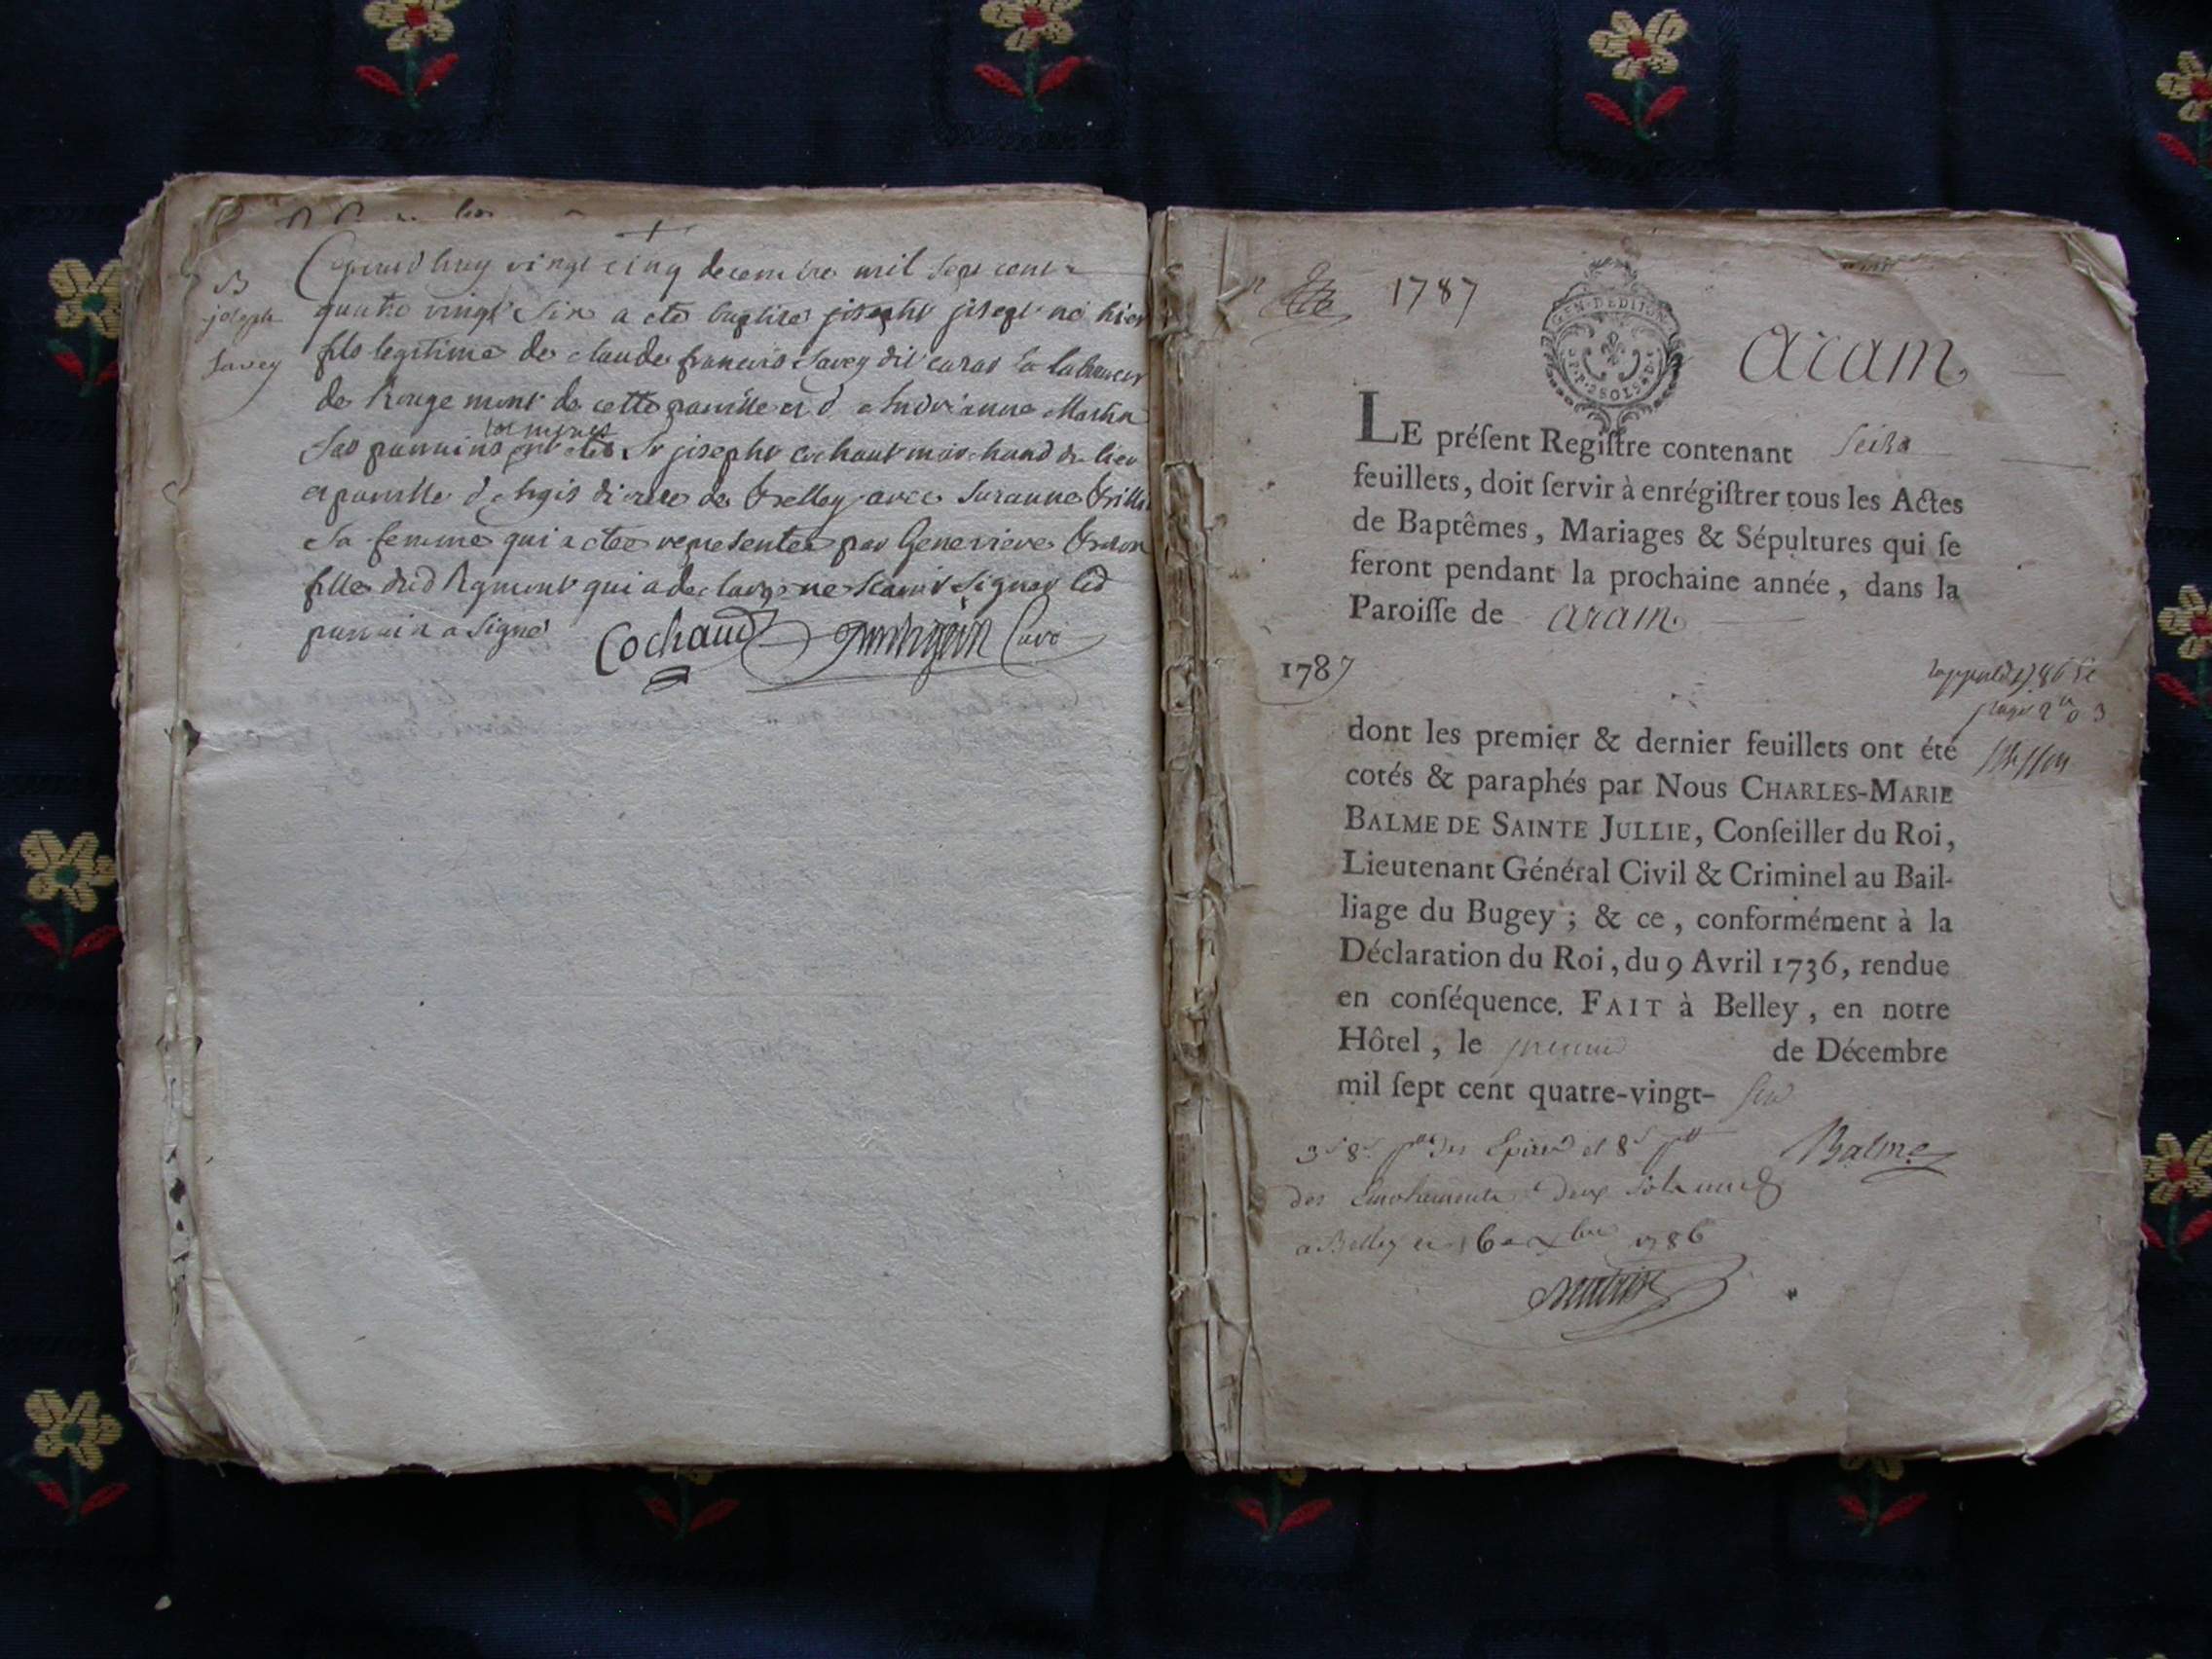 B
joseph
Savey
Cejourd'huy vingt cinq decembre mil sept cent
quatre vingt six a eté baptisé joseph né hier
fils legitime de claude francois Savey dit caras laboureur
de Rougemont de cette paroisse et d andrianne Martin
Ses parrains et mères Sr joseph cochaut marchand du lieu
et paroisse d diocese de Belley avec Suzanne
Sa femme qui a etée representée par Genevieve
fille dud qui a declaré ne scavoir signer led
parrain a signé Cochaud Curé
1787
GEN. DE DIJON
2 SOLS
Aram
LE préſent Regiſtre contenant Seize
feuillets, doit ſervir à enrégiſtrer tous les Actes
de Baptêmes, Mariages & Sépultures qui ſe
feront pendant la prochaine année, dans la
Paroiſſe de Aram
1787
dont les premier & dernier feuillets ont été
cotés & paraphés par Nous CHARLES-MARIE
BALME DE SAINTE JULLIE, Conſeiller du Roi,
Lieutenant Général Civil & Criminel au Bail-
liage du Bugey ; & ce, conformément à la
Déclaration du Roi, du 9 Avril 1736, rendue
en conſéquence. FAIT à Belley, en notre
Hôtel, le premier de Décembre
mil ſept cent quatre-vingt- six
Balme
a Belley le 1786